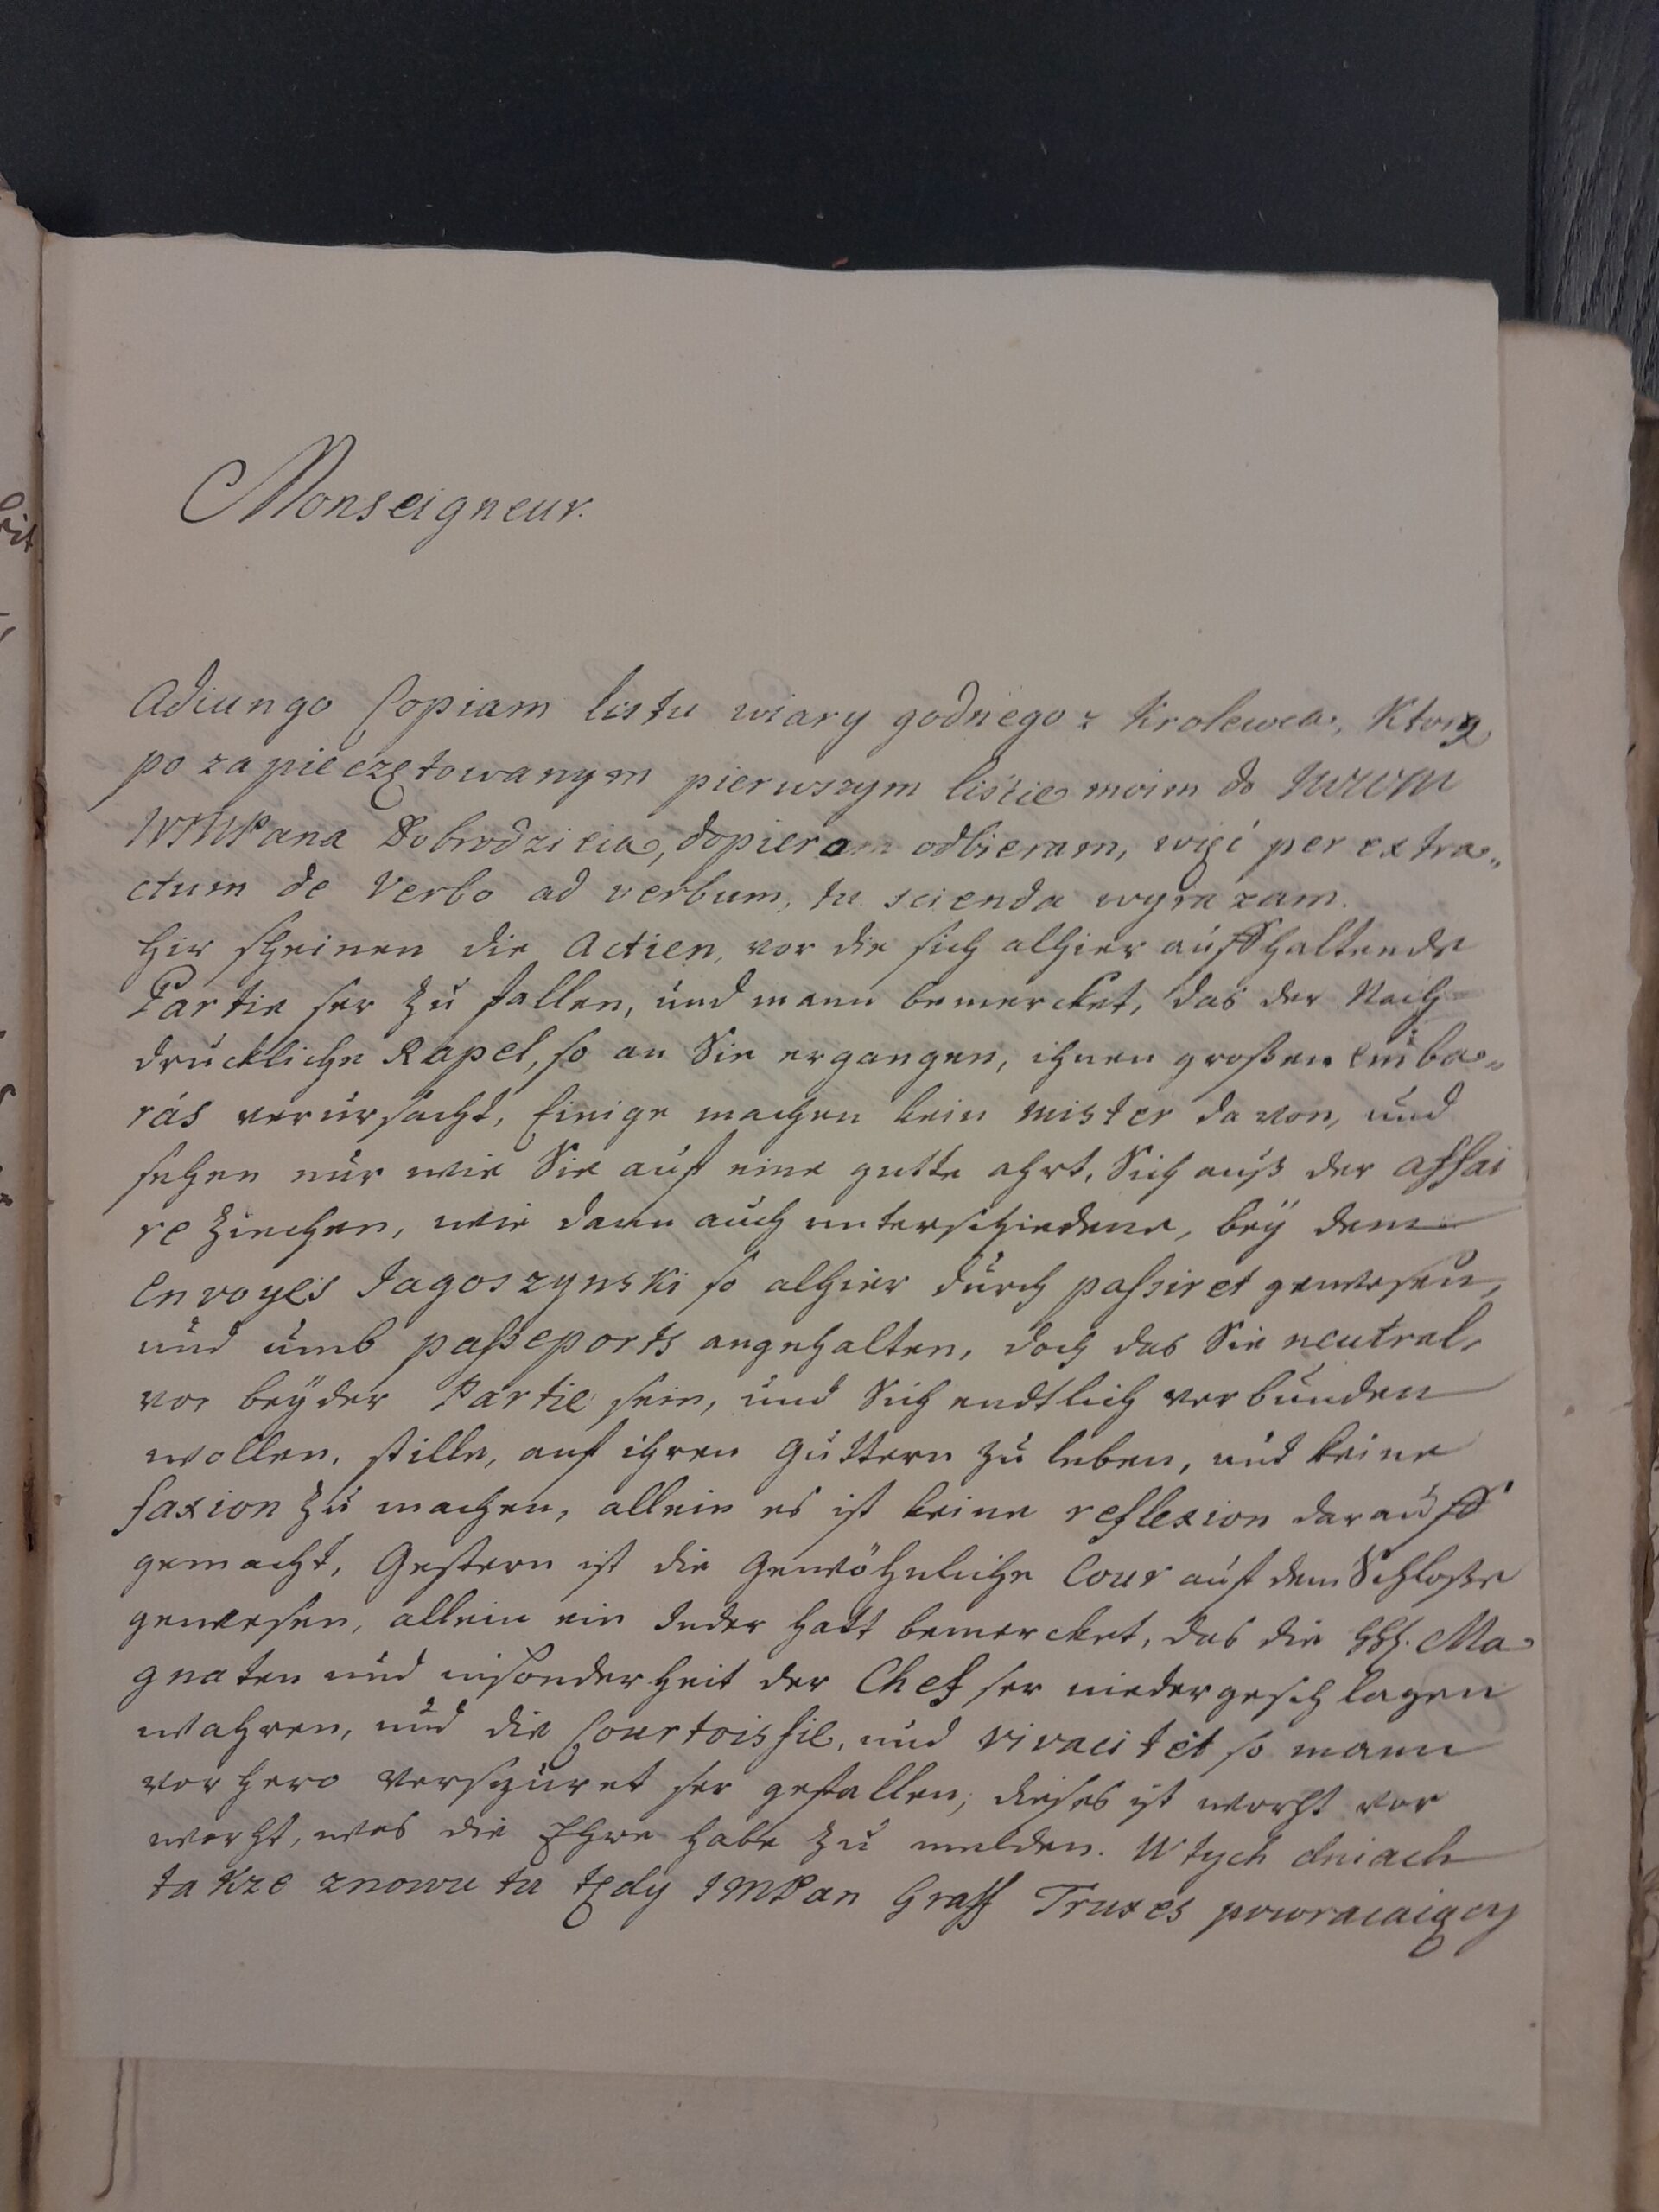 Monseigneur.
Adiungo Copiam listu wiary godnego z Krolewca, Ktory
po zapieczętowanym pierwszym liście moim do
WMMPana Dobrodzieia, dopiero odbieram, więc per extra„
ctum de Verbo ad verbum, tu scienda wyrazam.
hir scheinen die Actien, vor die sich alhier auffhaltende
Partie ser zu fallen, und mann bemercket, das der Nach=
druckliche Rapel, so an Sie ergangen, ihnen großen emba„
rás verursacht, Einige machen kein mister davon, und
sehen nur wie Sie auf eine gutte ahrt, Sich auß der affai
re Ziechen, wie dann auch unterschiedene, bey dem
Envoyés Jagoszynski so alhier durch passiret gewesen,
und umb passeports angehalten, doch das Sie neutral,
vor beyder Partie sein, und Sich endtlich verbunden
wollen, stille, auf ihren Guttern zu leben, und keine
faxion zu machen, allein es ist keine reflexion darauff
gemacht, Gestern ist die Gewöhnliche Cour auf dem Schloße
gewesen, allein ein Jeder hatt bemercket, das die HH. Ma=
gnaten und insonderheit der Chef ser niedergeschlagen
wahren, und die Courtoissie, und vivacitét so mann
vorhero verspuret ser gefallen, dieses ist worht vor
worht, was die Ehre habe zu melden. W tych dniach
takze znowu tu tędy JMPan Graff Truxes powracaiący